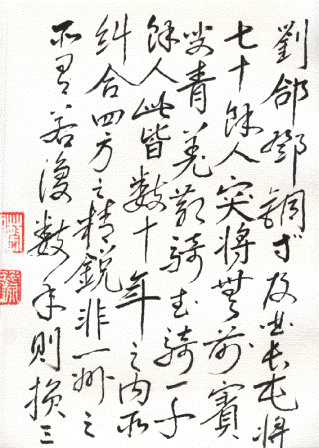 劉郃鄧銅等及曲長屯將
七十餘人突將無前賨
叟青羌散騎武騎一千
餘人此皆數十年之內所
糾合四方之精銳非一州之
所有若復數年則損三